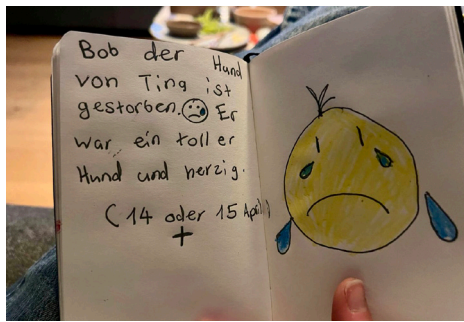 Bob der Hund
von Ting ist
gestorben. Er
war ein toller
Hund und herzig.
(14 oder 15 April)